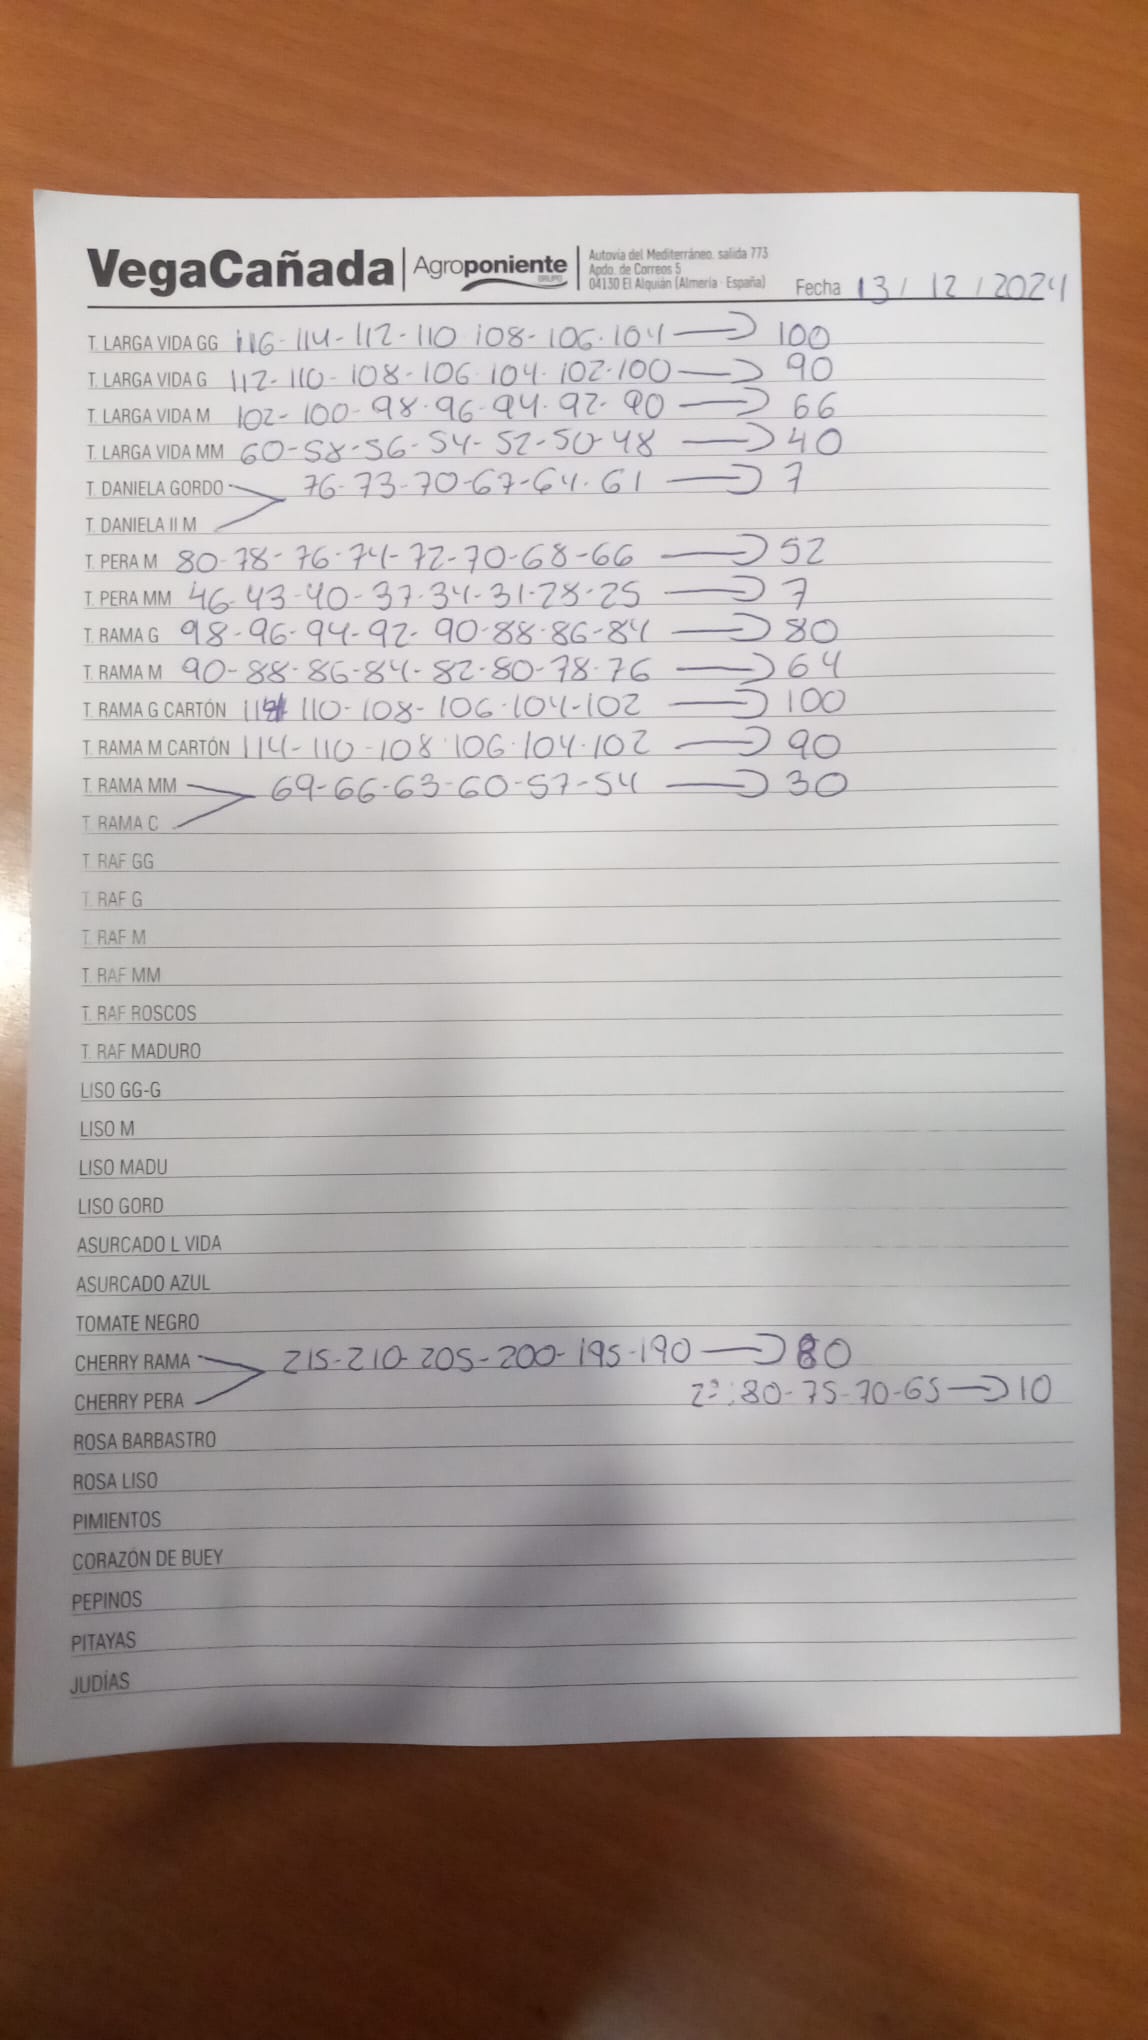 VegaCañada | Agroponiente GRUPO
Autovía del Mediterráneo, salida 773
Apdo. de Correos 5
04130 El Alquián (Almería - España)
Fecha 13 / 12 / 2024
T. LARGA VIDA GG 116-114-112-110 108-106-104 → 100
T. LARGA VIDA G 112-110-108-106-104-102-100 → 90
T. LARGA VIDA M 102-100-98-96-94-92-90 → 66
T. LARGA VIDA MM 60-58-56-54-52-50-48 → 40
T. DANIELA GORDO 76-73-70-67-64-61 → 7
T. DANIELA II M
T. PERA M 80-78-76-74-72-70-68-66 → 52
T. PERA MM 46-43-40-37-34-31-28-25 → 7
T. RAMA G 98-96-94-92-90-88-86-84 → 80
T. RAMA M 90-88-86-84-82-80-78-76 → 64
T. RAMA G CARTÓN 110-108-106-104-102 → 100
T. RAMA M CARTÓN 114-110-108-106-104-102 → 90
T. RAMA MM 69-66-63-60-57-54 → 30
T. RAMA C
T. RAF GG
T. RAF G
T. RAF M
T. RAF MM
T. RAF ROSCOS
T. RAF MADURO
LISO GG-G
LISO M
LISO MADU
LISO GORD
ASURCADO L VIDA
ASURCADO AZUL
TOMATE NEGRO
CHERRY RAMA 215-210-205-200-195-190 → 80
CHERRY PERA 2ª:80-75-70-65 → 10
ROSA BARBASTRO
ROSA LISO
PIMIENTOS
CORAZÓN DE BUEY
PEPINOS
PITAYAS
JUDÍAS